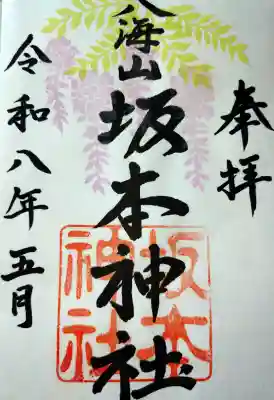 奉拝
八海山坂本神社
坂本
神社
令和八年五月